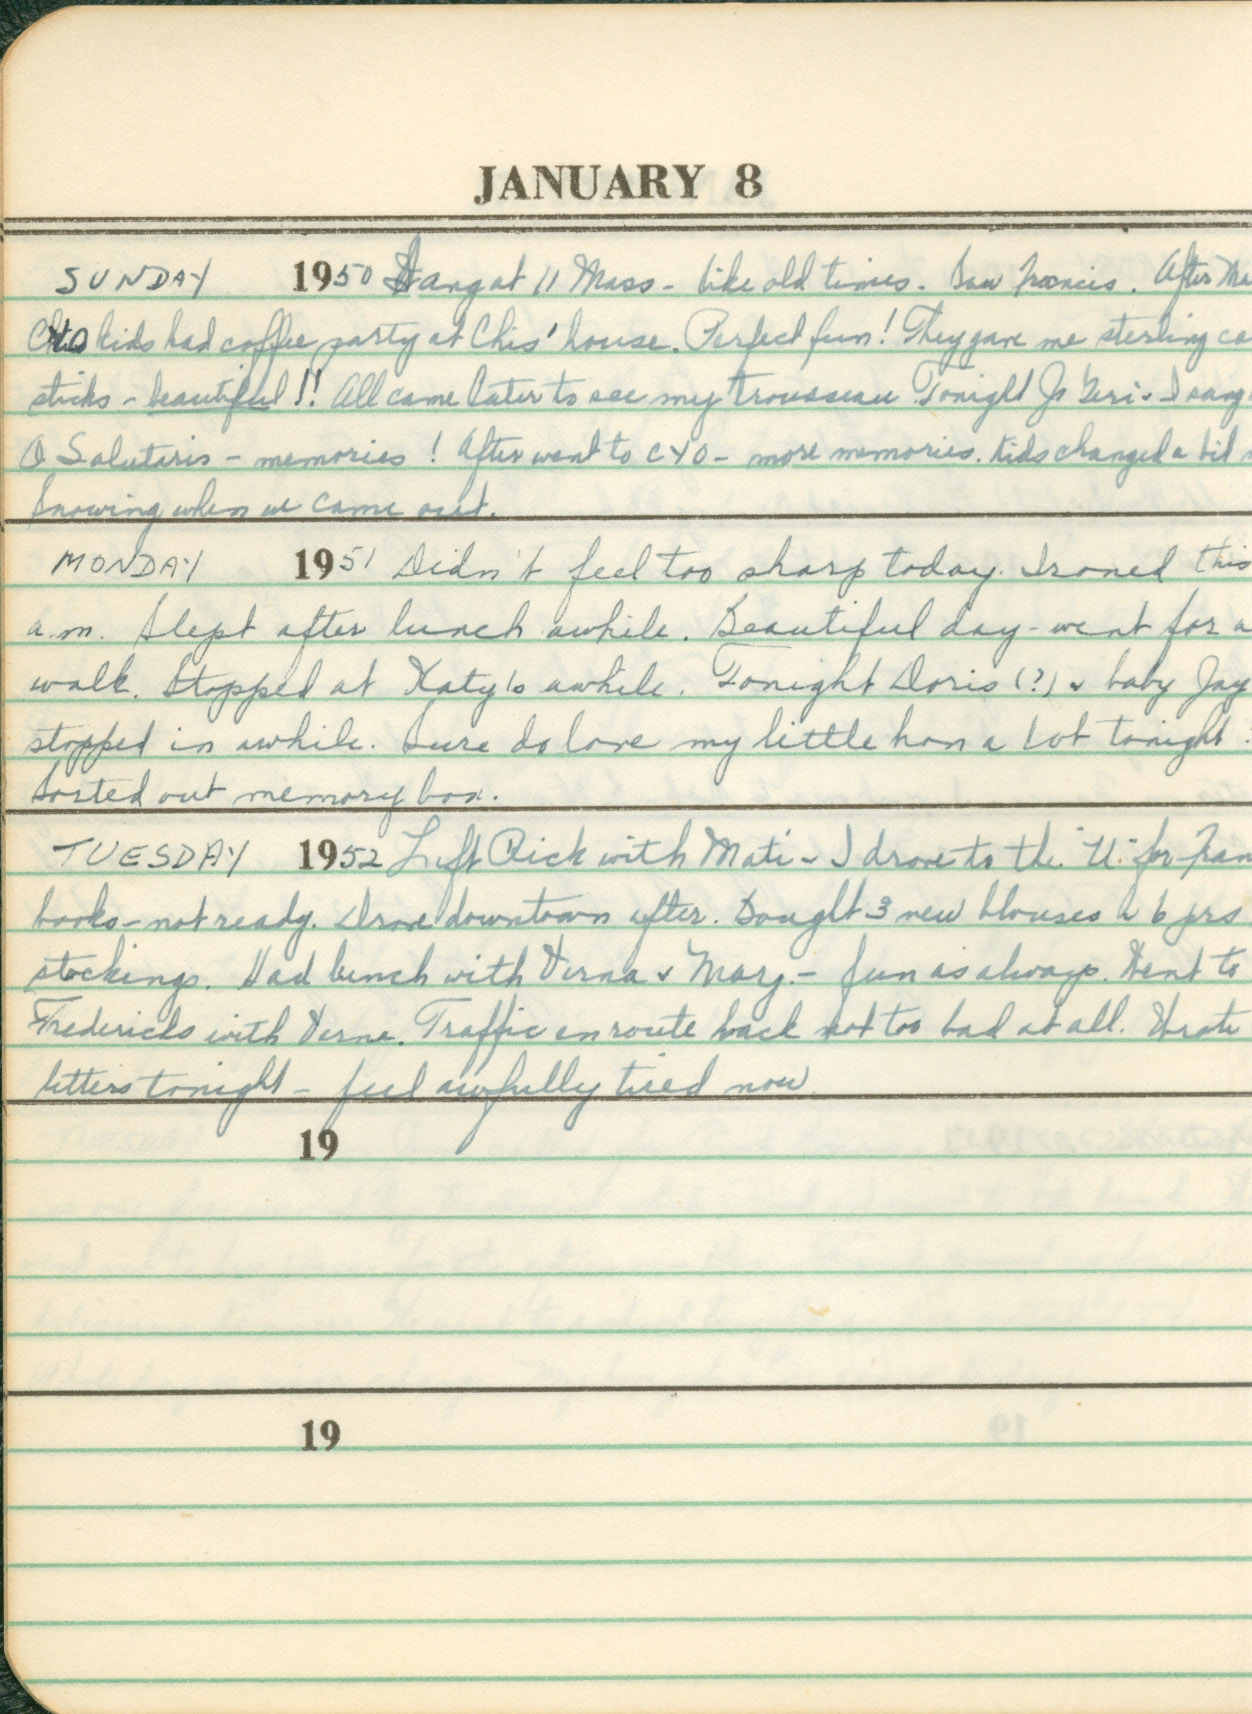 JANUARY 8
SUNDAY 1950 Sang at 11 Mass - like old times. Saw Francis. After Ma
CYO kids had coffee party at Chis' house. Perfect fun! They gave me sterling ca
sticks - beautiful!! All came later to see my trousseau Tonight Jo Geri & I sang
O Salutaris - memories! After went to CYO - more memories. Kids changed a bit
Snowing when we came out.
MONDAY 1951 Didn't feel too sharp today. Ironed this
a.m. Slept after lunch awhile. Beautiful day - went for a
walk. Stopped at Katy's awhile. Tonight Doris (?) & baby Jay
stopped in awhile. Sure do love my little hon a lot tonight.
Sorted out memory box.
TUESDAY 1952 Left Rick with Mati - I drove to the "U." for Fran
books - not ready. Drove downtown after. Bought 3 new blouses & 6 prs
stockings. Had lunch with Verna & Marg. - fun as always. Went to
Fredericks with Verne. Traffic enroute back not too bad at all. Wrote
letters tonight - feel awfully tired now.
19
19